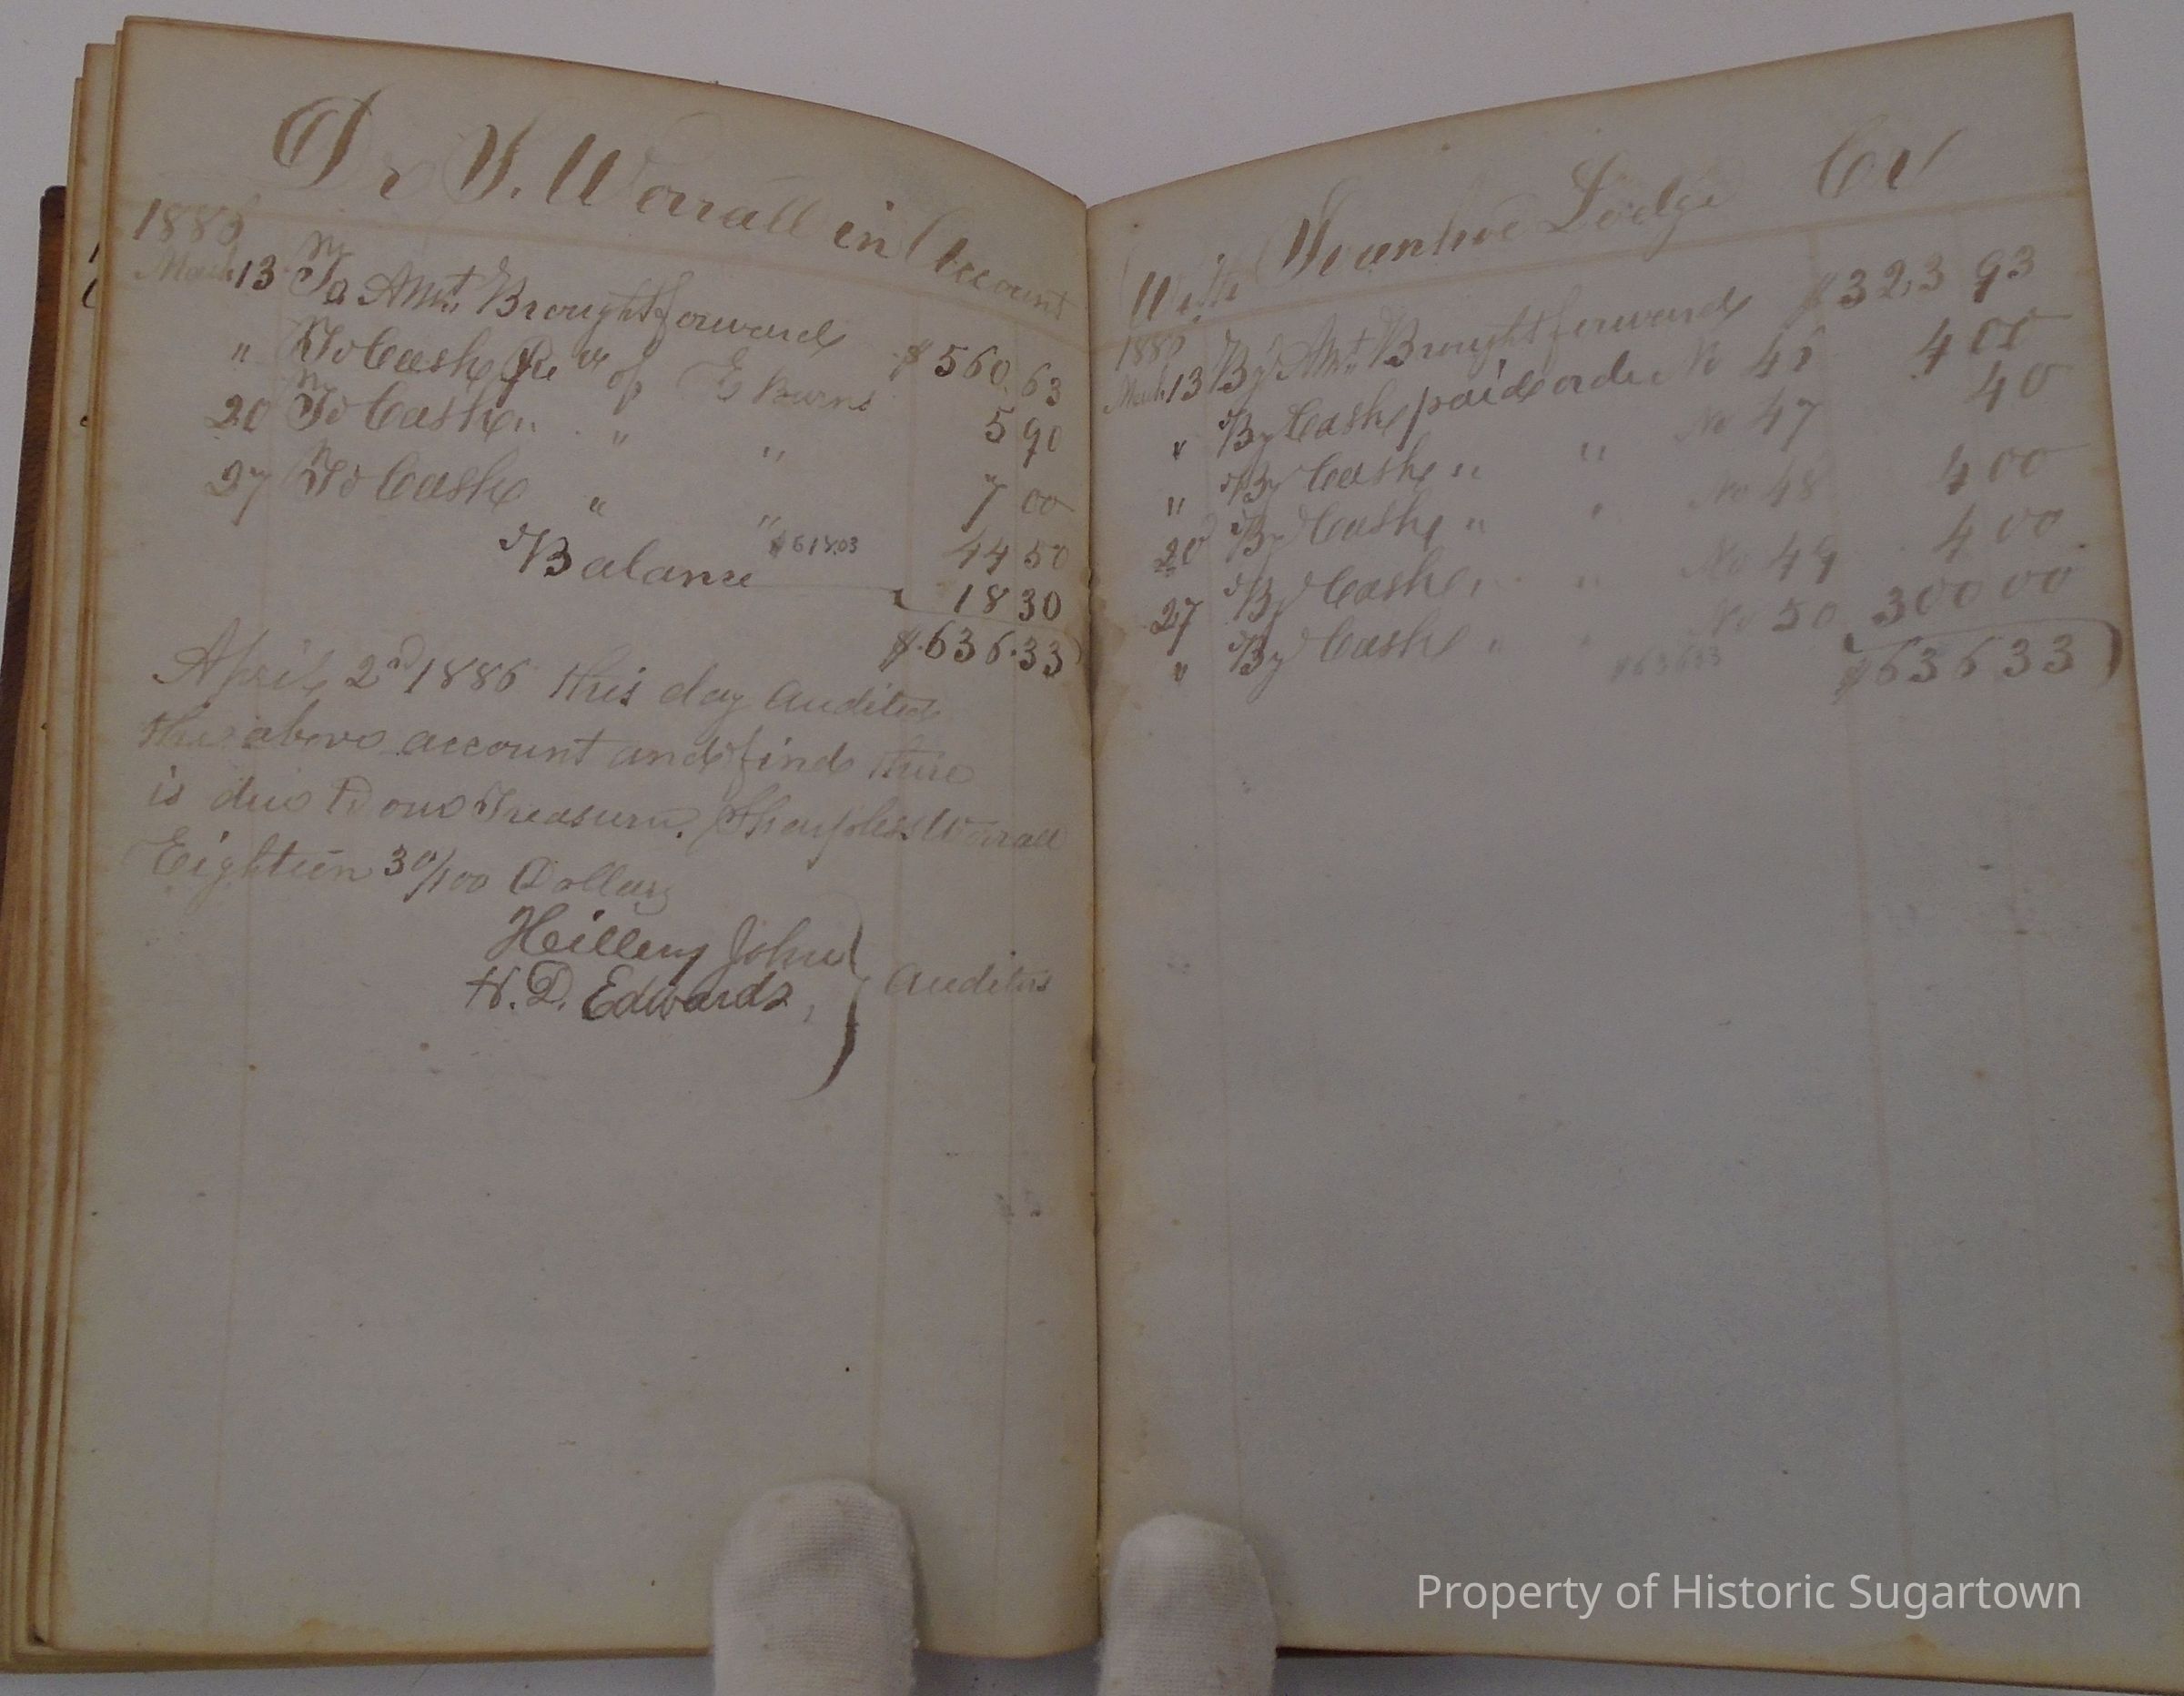 Dr S. Worrall in Account
1886
March 13 To Amt Brought forward $560.63
" To Cash Recd of E Burns 5 90
20 To Cash " " " 7 00
27 To Cash " " 44 50
$618.03
Balance 18 30
$636.33
April 2nd 1886 this day audited
the above account and find there
is due to our Treasurer. Sharpless Worrall
Eighteen 30/100 Dollars
Hillery John
H. D. Edwards,
Auditors
With Ivanhoe Lodge Cr
1886
March 13 By Amt Brought forward $323 93
" By Cash paid order No 46 4 00
" By Cash " " No 47 40
20 By Cash " " No 48 4 00
27 By Cash " " No 49 4 00
" By Cash " " No 50 300 00
$636 33
$636 33
Property of Historic Sugartown